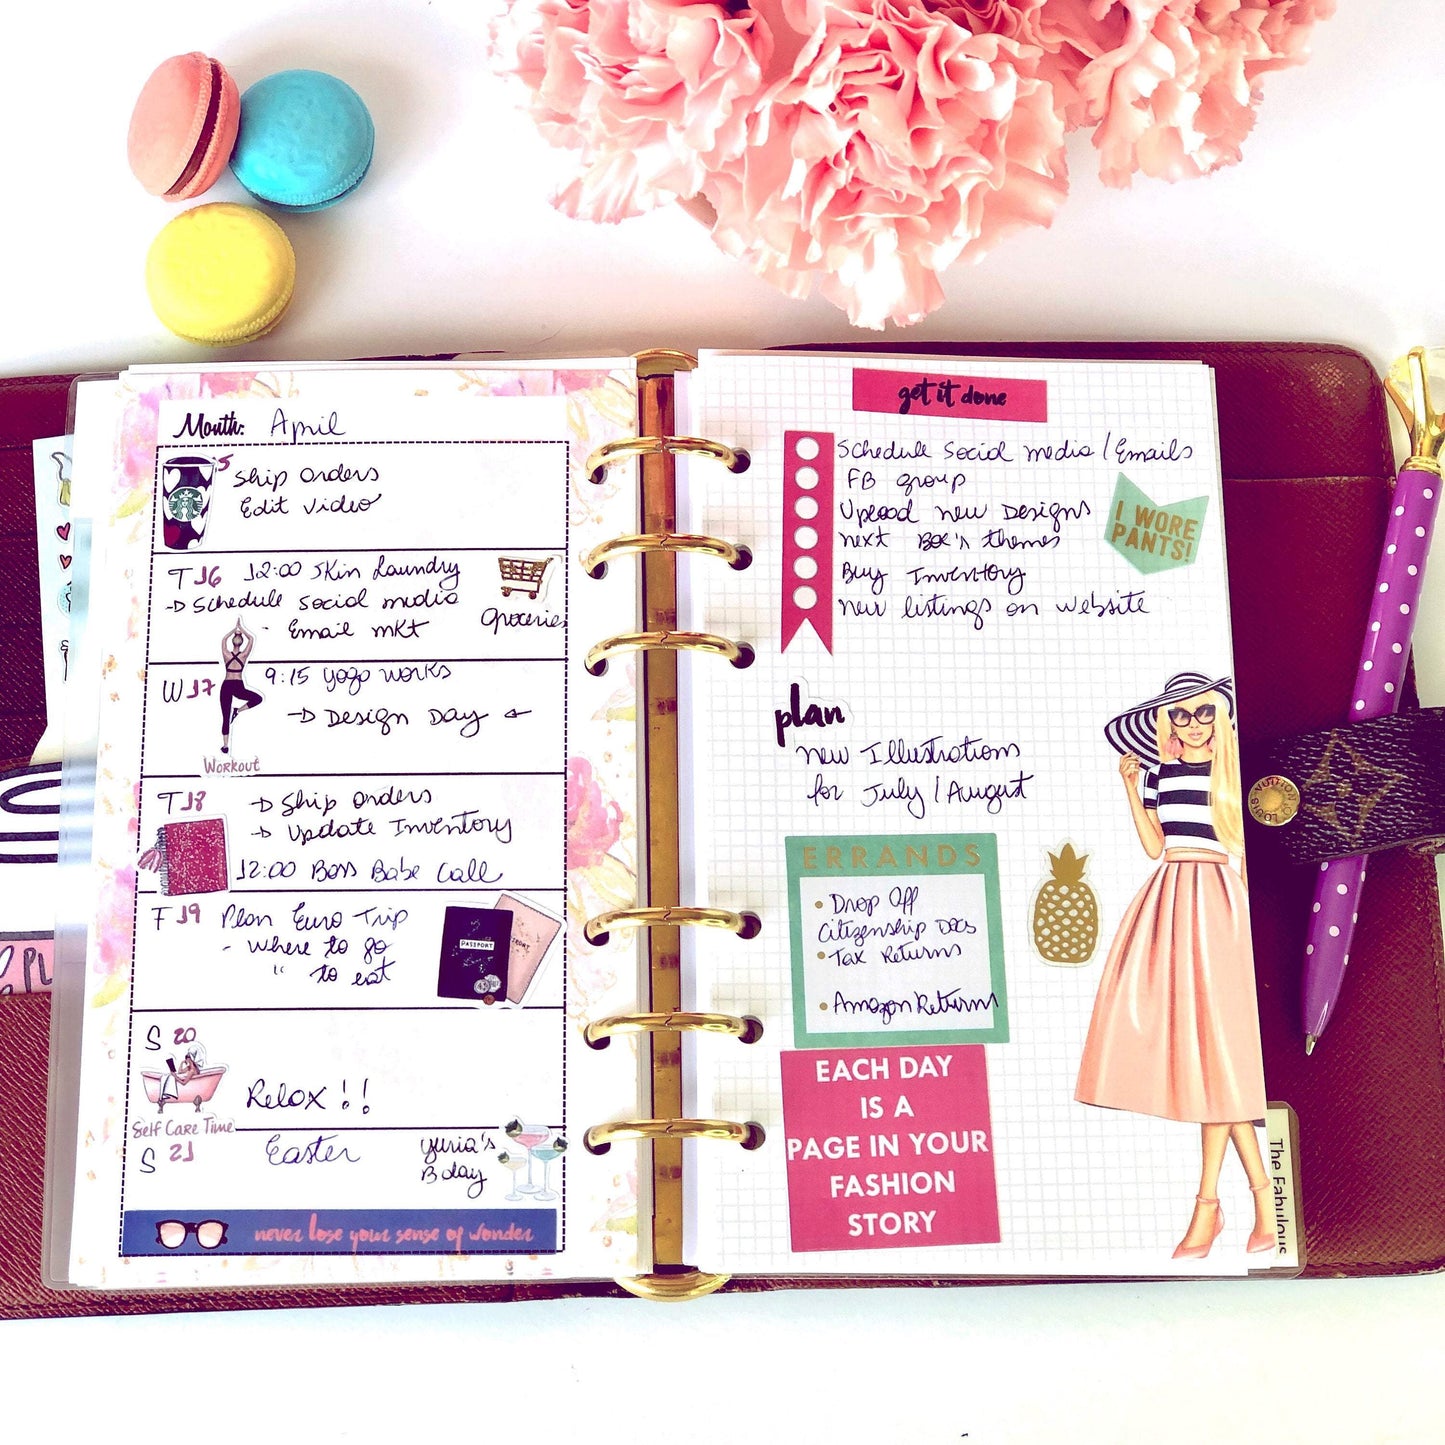 Month: April
5 Ship Orders
Edit Video
T 16 12:00 Skin Laundry
→ Schedule social media
- Email mkt
Groceries
W 17 9:15 yoga works
→ Design Day ←
Workout
T 18 → Ship orders
→ Update Inventory
12:00 Boss Babe Call
F 19 Plan Euro Trip
- Where to go
" to eat
PASSPORT
S 20
Relax!!
Self Care Time
S 21 Easter
Yuria's
Bday
never lose your sense of wonder
get it done
Schedule social media / Emails
FB group
Upload new Designs
next Box's themes
Buy Inventory
new listings on website
I WORE
PANTS!
plan
new Illustrations
for July / August
ERRANDS
• Drop Off
Citizenship Docs
• Tax Returns
• Amazon Returns
EACH DAY
IS A
PAGE IN YOUR
FASHION
STORY
The Fabulous
LOUIS VUITTON